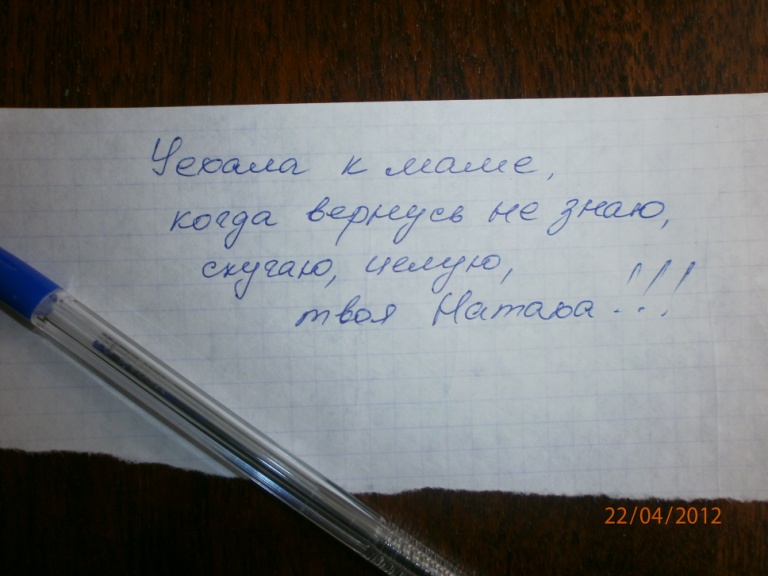 Уехала к маме,
когда вернусь не знаю,
скучаю, целую,
твоя Наташа!!!
22/04/2012